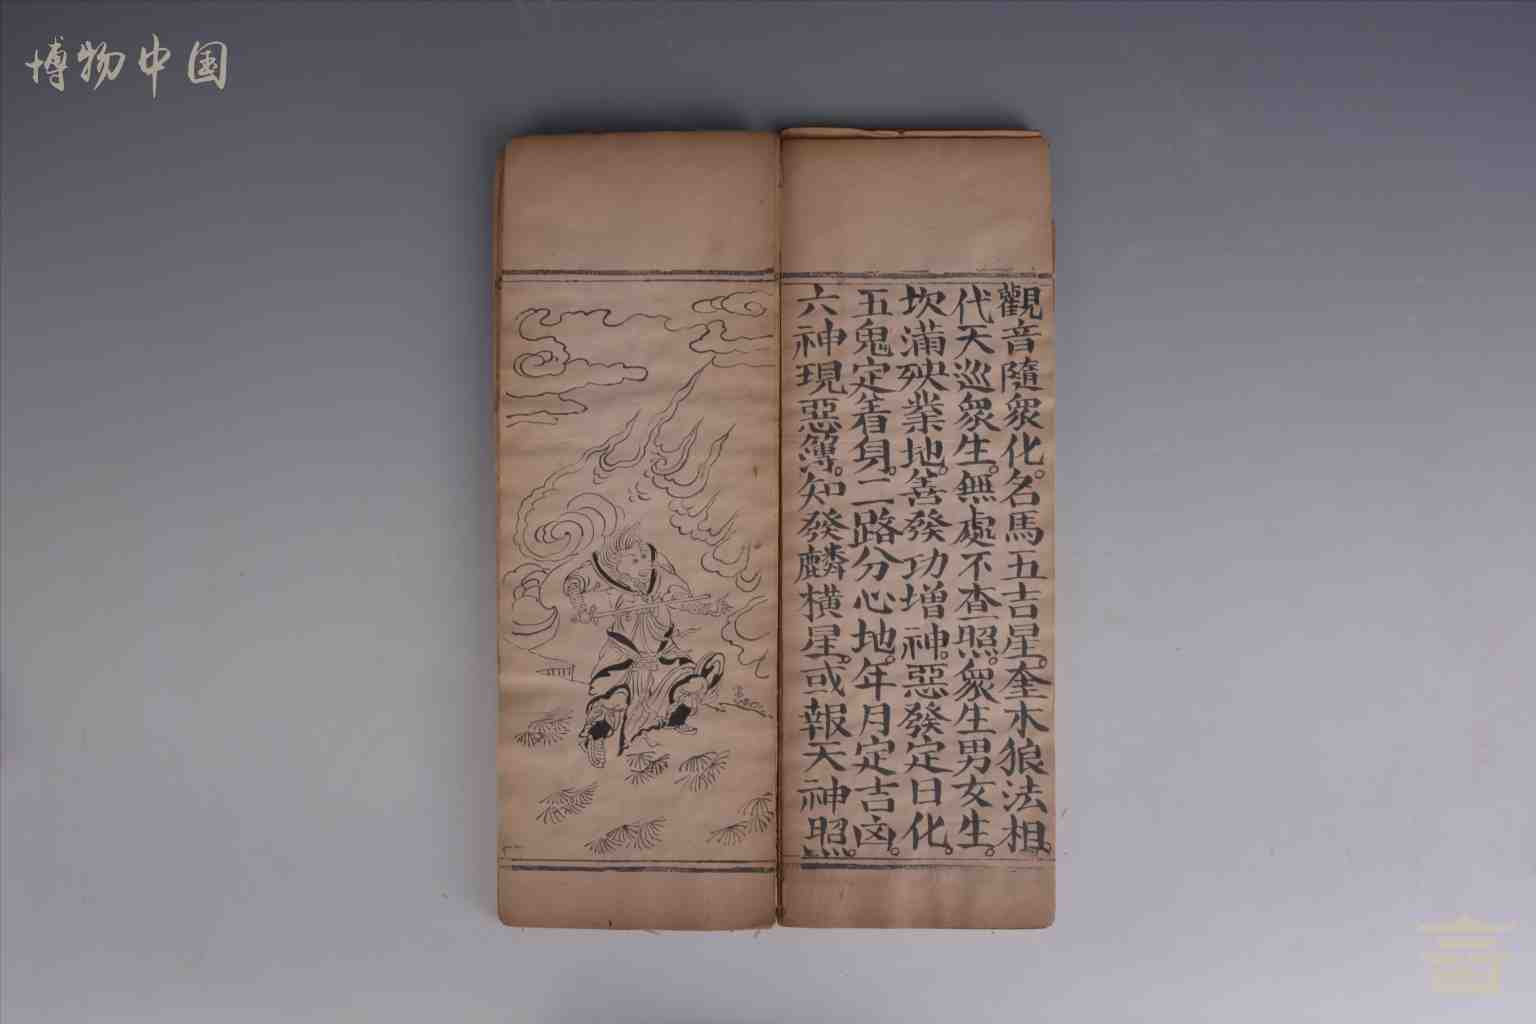 博物中国
觀音隨眾化。名馬五吉星。奎木狼法相。
代天巡眾生。無處不查照。眾生男女生。
坎滿殃業地。善發功增神。惡發定日化。
五鬼定着身。二路分心地。年月定吉凶。
六神現惡簿。知發麟橫星。或報天神照。